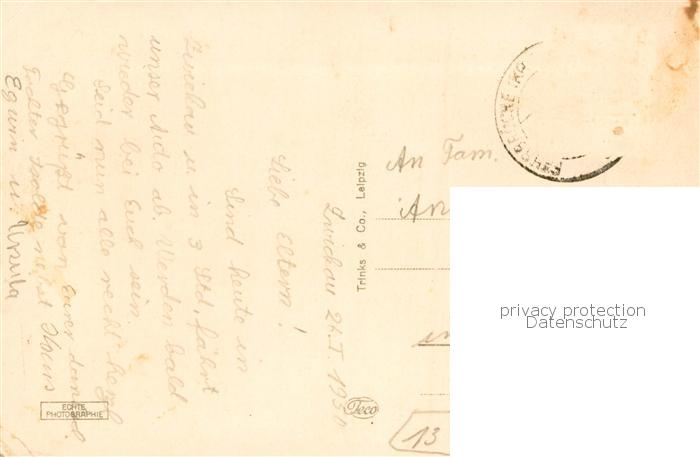 Zwickau 24.I.1930
Liebe Eltern!
Sind heute in
Zwickau u. in 3 Std. fährt
unser Auto ab. Werden bald
wieder bei Euch sein
Seid nun alle recht herzl
gegrüßt von Eurer dankb.
Tochter nebst Hans
Egwin u. Ursula
An Fam.
An
in
13
Trinks & Co., Leipzig
Teco
ECHTE
PHOTOGRAPHIE
privacy protection
Datenschutz